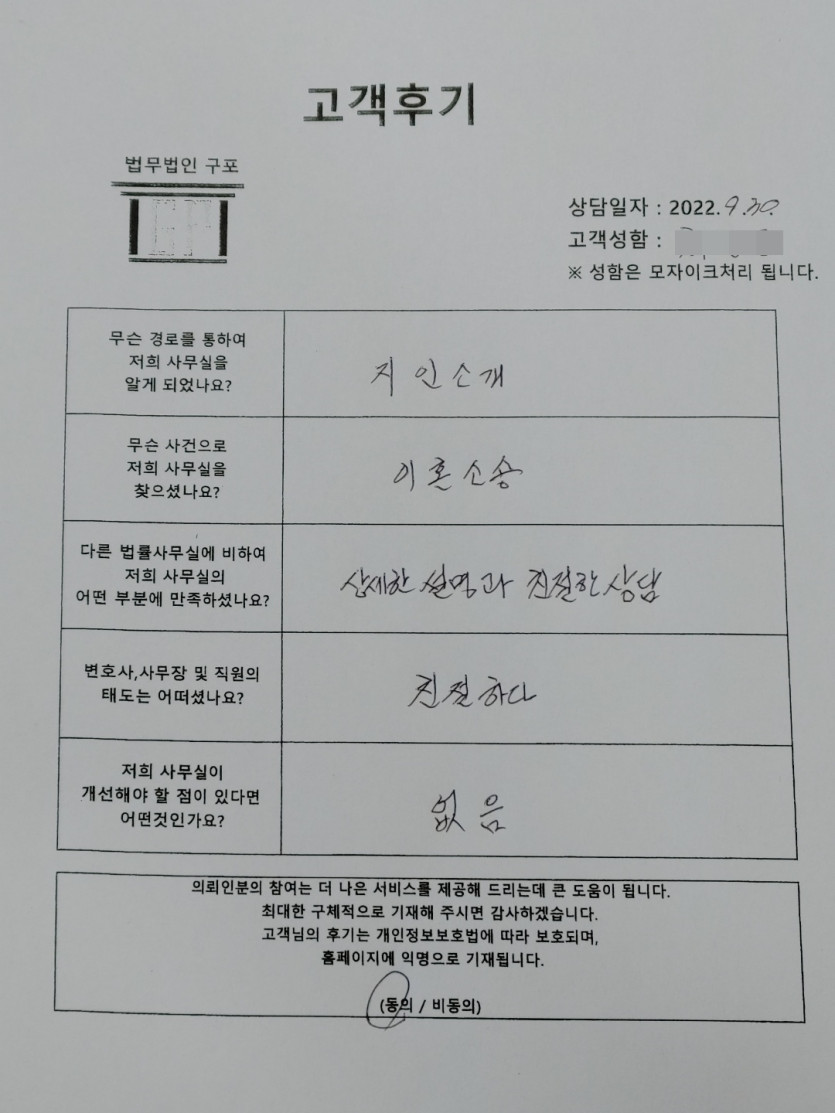 고객후기
법무법인 구포
상담일자 : 2022. 9. 30.
고객성함 :
※ 성함은 모자이크처리 됩니다.
무슨 경로를 통하여
저희 사무실을
알게 되었나요?
지인소개
무슨 사건으로
저희 사무실을
찾으셨나요?
이혼소송
다른 법률사무실에 비하여
저희 사무실의
어떤 부분에 만족하셨나요?
상세한 설명과 친절한 상담
변호사,사무장 및 직원의
태도는 어떠셨나요?
친절하다
저희 사무실이
개선해야 할 점이 있다면
어떤것인가요?
없음
의뢰인분의 참여는 더 나은 서비스를 제공해 드리는데 큰 도움이 됩니다.
최대한 구체적으로 기재해 주시면 감사하겠습니다.
고객님의 후기는 개인정보보호법에 따라 보호되며,
홈페이지에 익명으로 기재됩니다.
(동의 / 비동의)